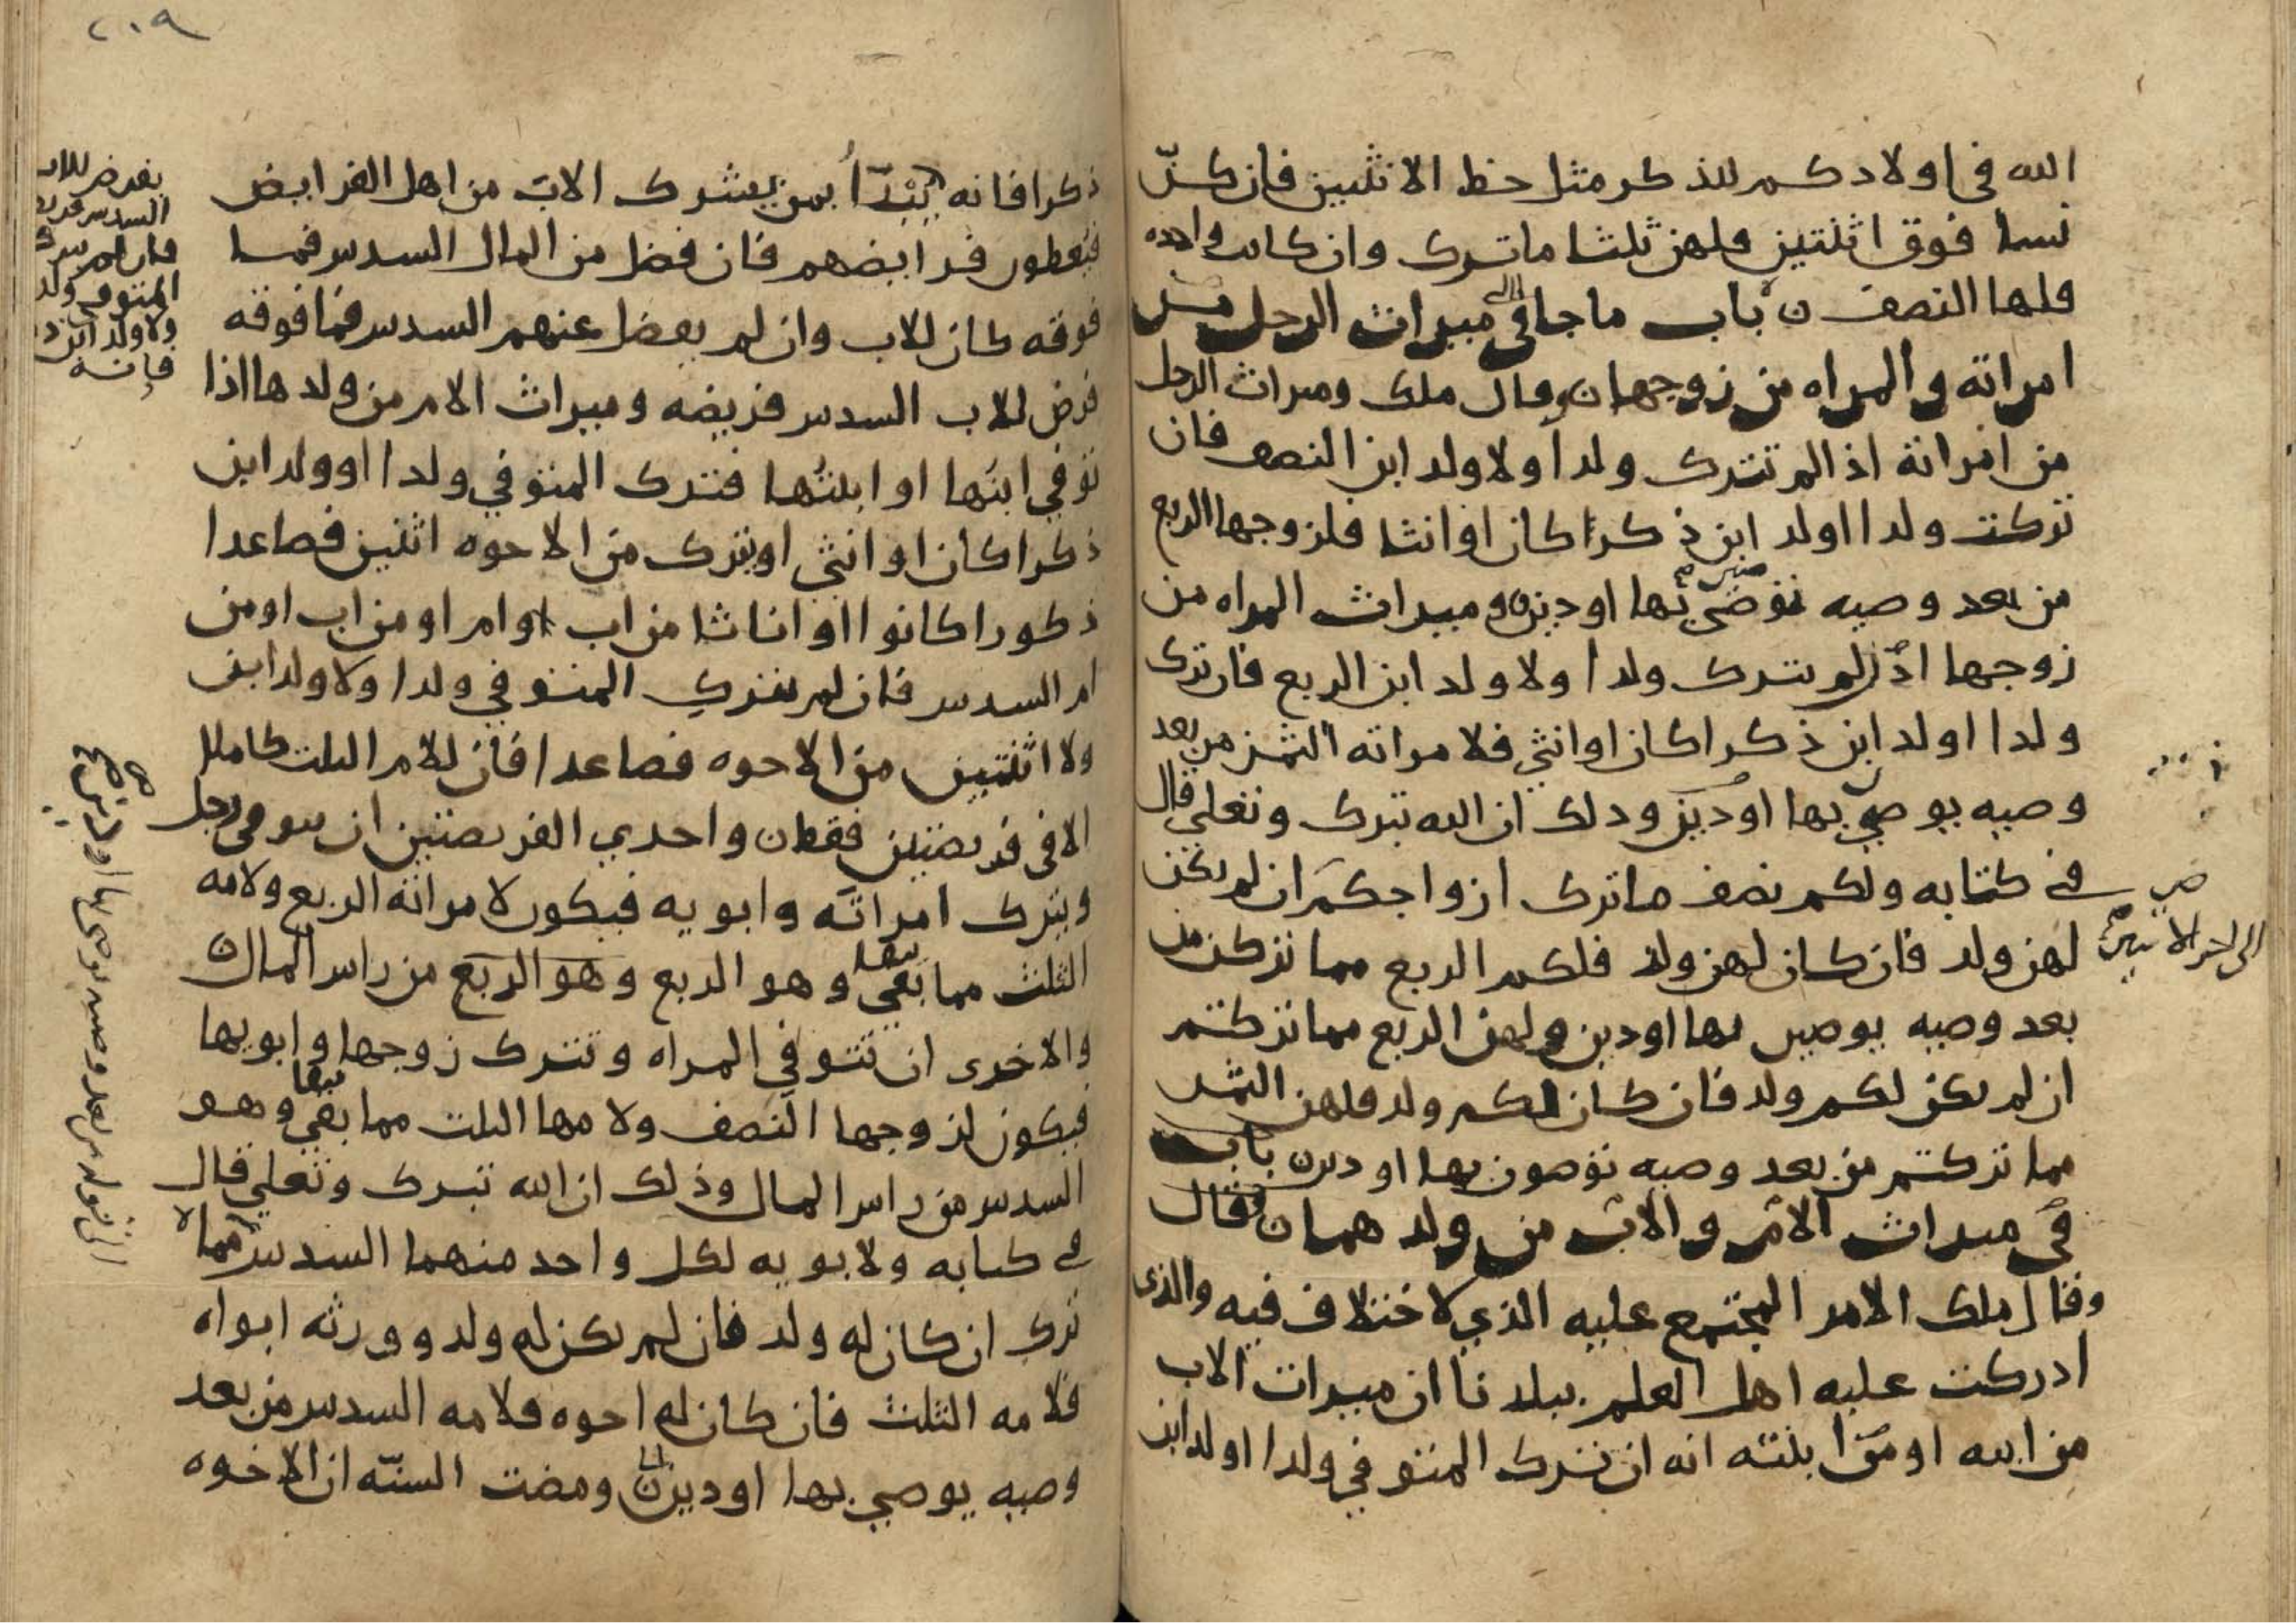 الله في اولادكم للذكر مثل حظ الانثيين فان كنّ
نسا فوق اثنتين فلهن ثلثا ما ترك وان كانت واحده
فلها النصف ن باب ما جا في ميراث الرجل من
امراته والمراه من زوجها ن وقال ملك وميراث الرجل
من امراته اذا لم تترك ولدا ولا ولد ابن النصف فان
تركت ولدا او لد ابن ذكرا كان او انثا فلزوجها الربع
من بعد وصيه توصي بها او دين وميراث المراه من
زوجها اذا لم يترك ولدا ولا ولد ابن الربع فان ترك
ولدا او لد ابن ذكرا كان او انثي فلامراته الثمن من بعد
وصيه يوصي بها او دين ودلك ان الله تبرك وتعلي قال
في كتابه ولكم نصف ما ترك ازواجكم ان لم يكن
لهن ولد فان كان لهن ولد فلكم الربع مما تركن من
بعد وصيه يوصين بها او دين ولهن الربع مما تركتم
ان لم يكن لكم ولد فان كان لكم ولد فلهن الثمن
مما تركتم من بعد وصيه توصون بها او دين باب
في ميراث الام والاب من ولدهما ن وقال
وقال ملك الامر المجتمع عليه الذي لا ختلاف فيه والذي
ادركت عليه اهل العلم ببلدنا ان ميراث الاب
من ابنه او من ابنته انه ان ترك المتوفي ولدا او لد ابن
الى اخر الايتين
٢٠٩
ذكرا فانه يبدّأ بمن يشرك الاب من اهل الفرايض
فيعطون فرايضهم فان فضل من المال السدس فما
فوقه كان للاب وان لم يفضل عنهم السدس فما فوقه
فرض للاب السدس فريضه وميراث الام من ولدها اذا
توفي ابنها او ابنتها فترك المتوفي ولدا او ولد ابن
ذكرا كان او انثي او يترك من الاخوه اثنين فصاعدا
ذكورا كانوا او اناثا من اب وام او من اب او من
ام السدس فان لم يترك المتوفي ولدا ولا ولد ابن
ولا اثنتين من الاخوه فصاعدا فان للام الثلث كاملا
الا في فريضتين فقط ن واحدي الفريضتين ان يتوفى رجل
ويترك امراته وابويه فيكون لامراته الربع ولامه
الثلث مما بقي وهو الربع وهو الربع من راس المال ن
والاخرى ان تتوفي المراه وتترك زوجها وابويها
فيكون لزوجها النصف ولامها الثلث مما بقي وهو
السدس من راس المال وذلك ان الله تبرك وتعلي قال
في كتابه ولابويه لكل واحد منهما السدس مما
ترك ان كان له ولد فان لم يكن له ولد وورثه ابواه
فلامه الثلث فان كان له اخوه فلامه السدس من بعد
وصيه يوصي بها او دين ومضت السنّه ان الاخوه
يفرض للاب
السدس
فان لم يترك
المتوفي ولد
ولا ولد ابن
فانه